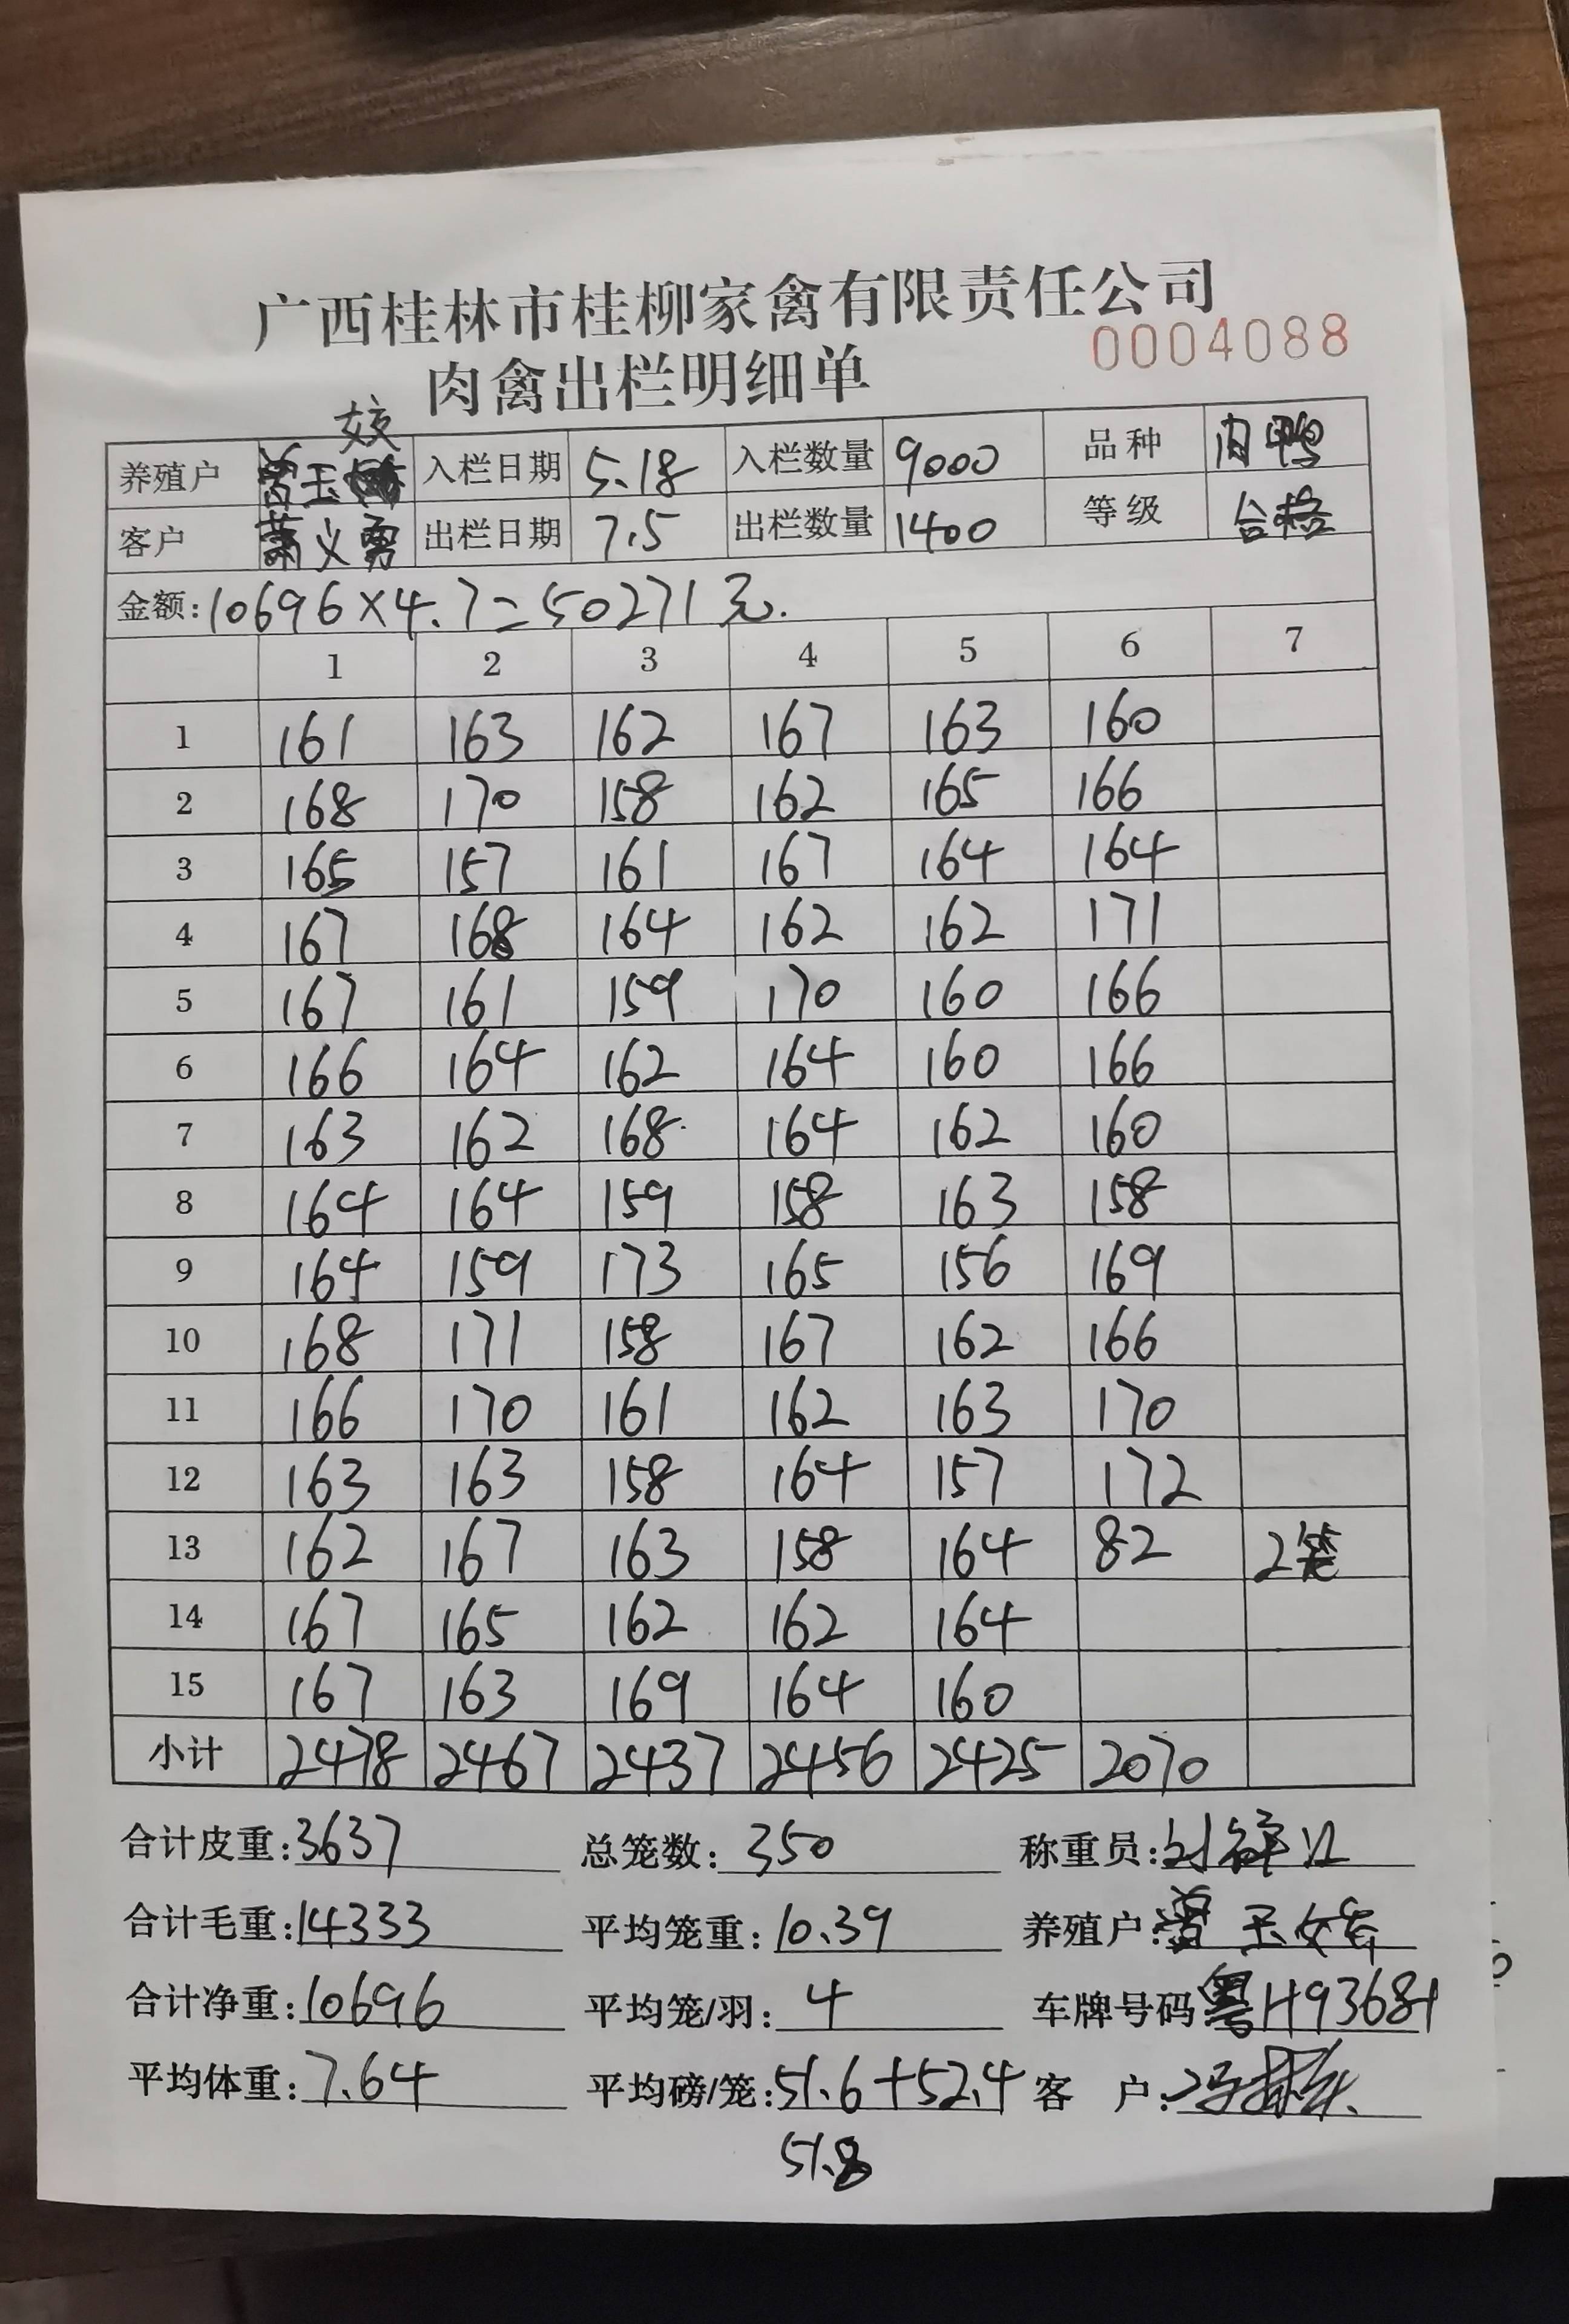 广西桂林市桂柳家禽有限责任公司
肉禽出栏明细单 0004088
姣
养殖户 曾玉 入栏日期 5.18 入栏数量 9000 品种 肉鸭
客户 萧义勇 出栏日期 7.5 出栏数量 1400 等级 合格
金额:10696×4.7=50271元.
1 2 3 4 5 6 7
1 161 163 162 167 163 160
2 168 170 158 162 165 166
3 165 157 161 167 164 164
4 167 168 164 162 162 171
5 167 161 159 170 160 166
6 166 164 162 164 160 166
7 163 162 168 164 162 160
8 164 164 159 158 163 158
9 164 159 173 165 156 169
10 168 171 158 167 162 166
11 166 170 161 162 163 170
12 163 163 158 164 157 172
13 162 167 163 158 164 82 2笼
14 167 165 162 162 164
15 167 163 169 164 160
小计 2478 2467 2437 2456 2425 2070
合计皮重:3637 总笼数:350 称重员:
合计毛重:14333 平均笼重:10.39 养殖户:曾玉
合计净重:10696 平均笼/羽:4 车牌号码 粤H93681
平均体重:7.64 平均磅/笼:51.6+52.4 客 户:
51.8